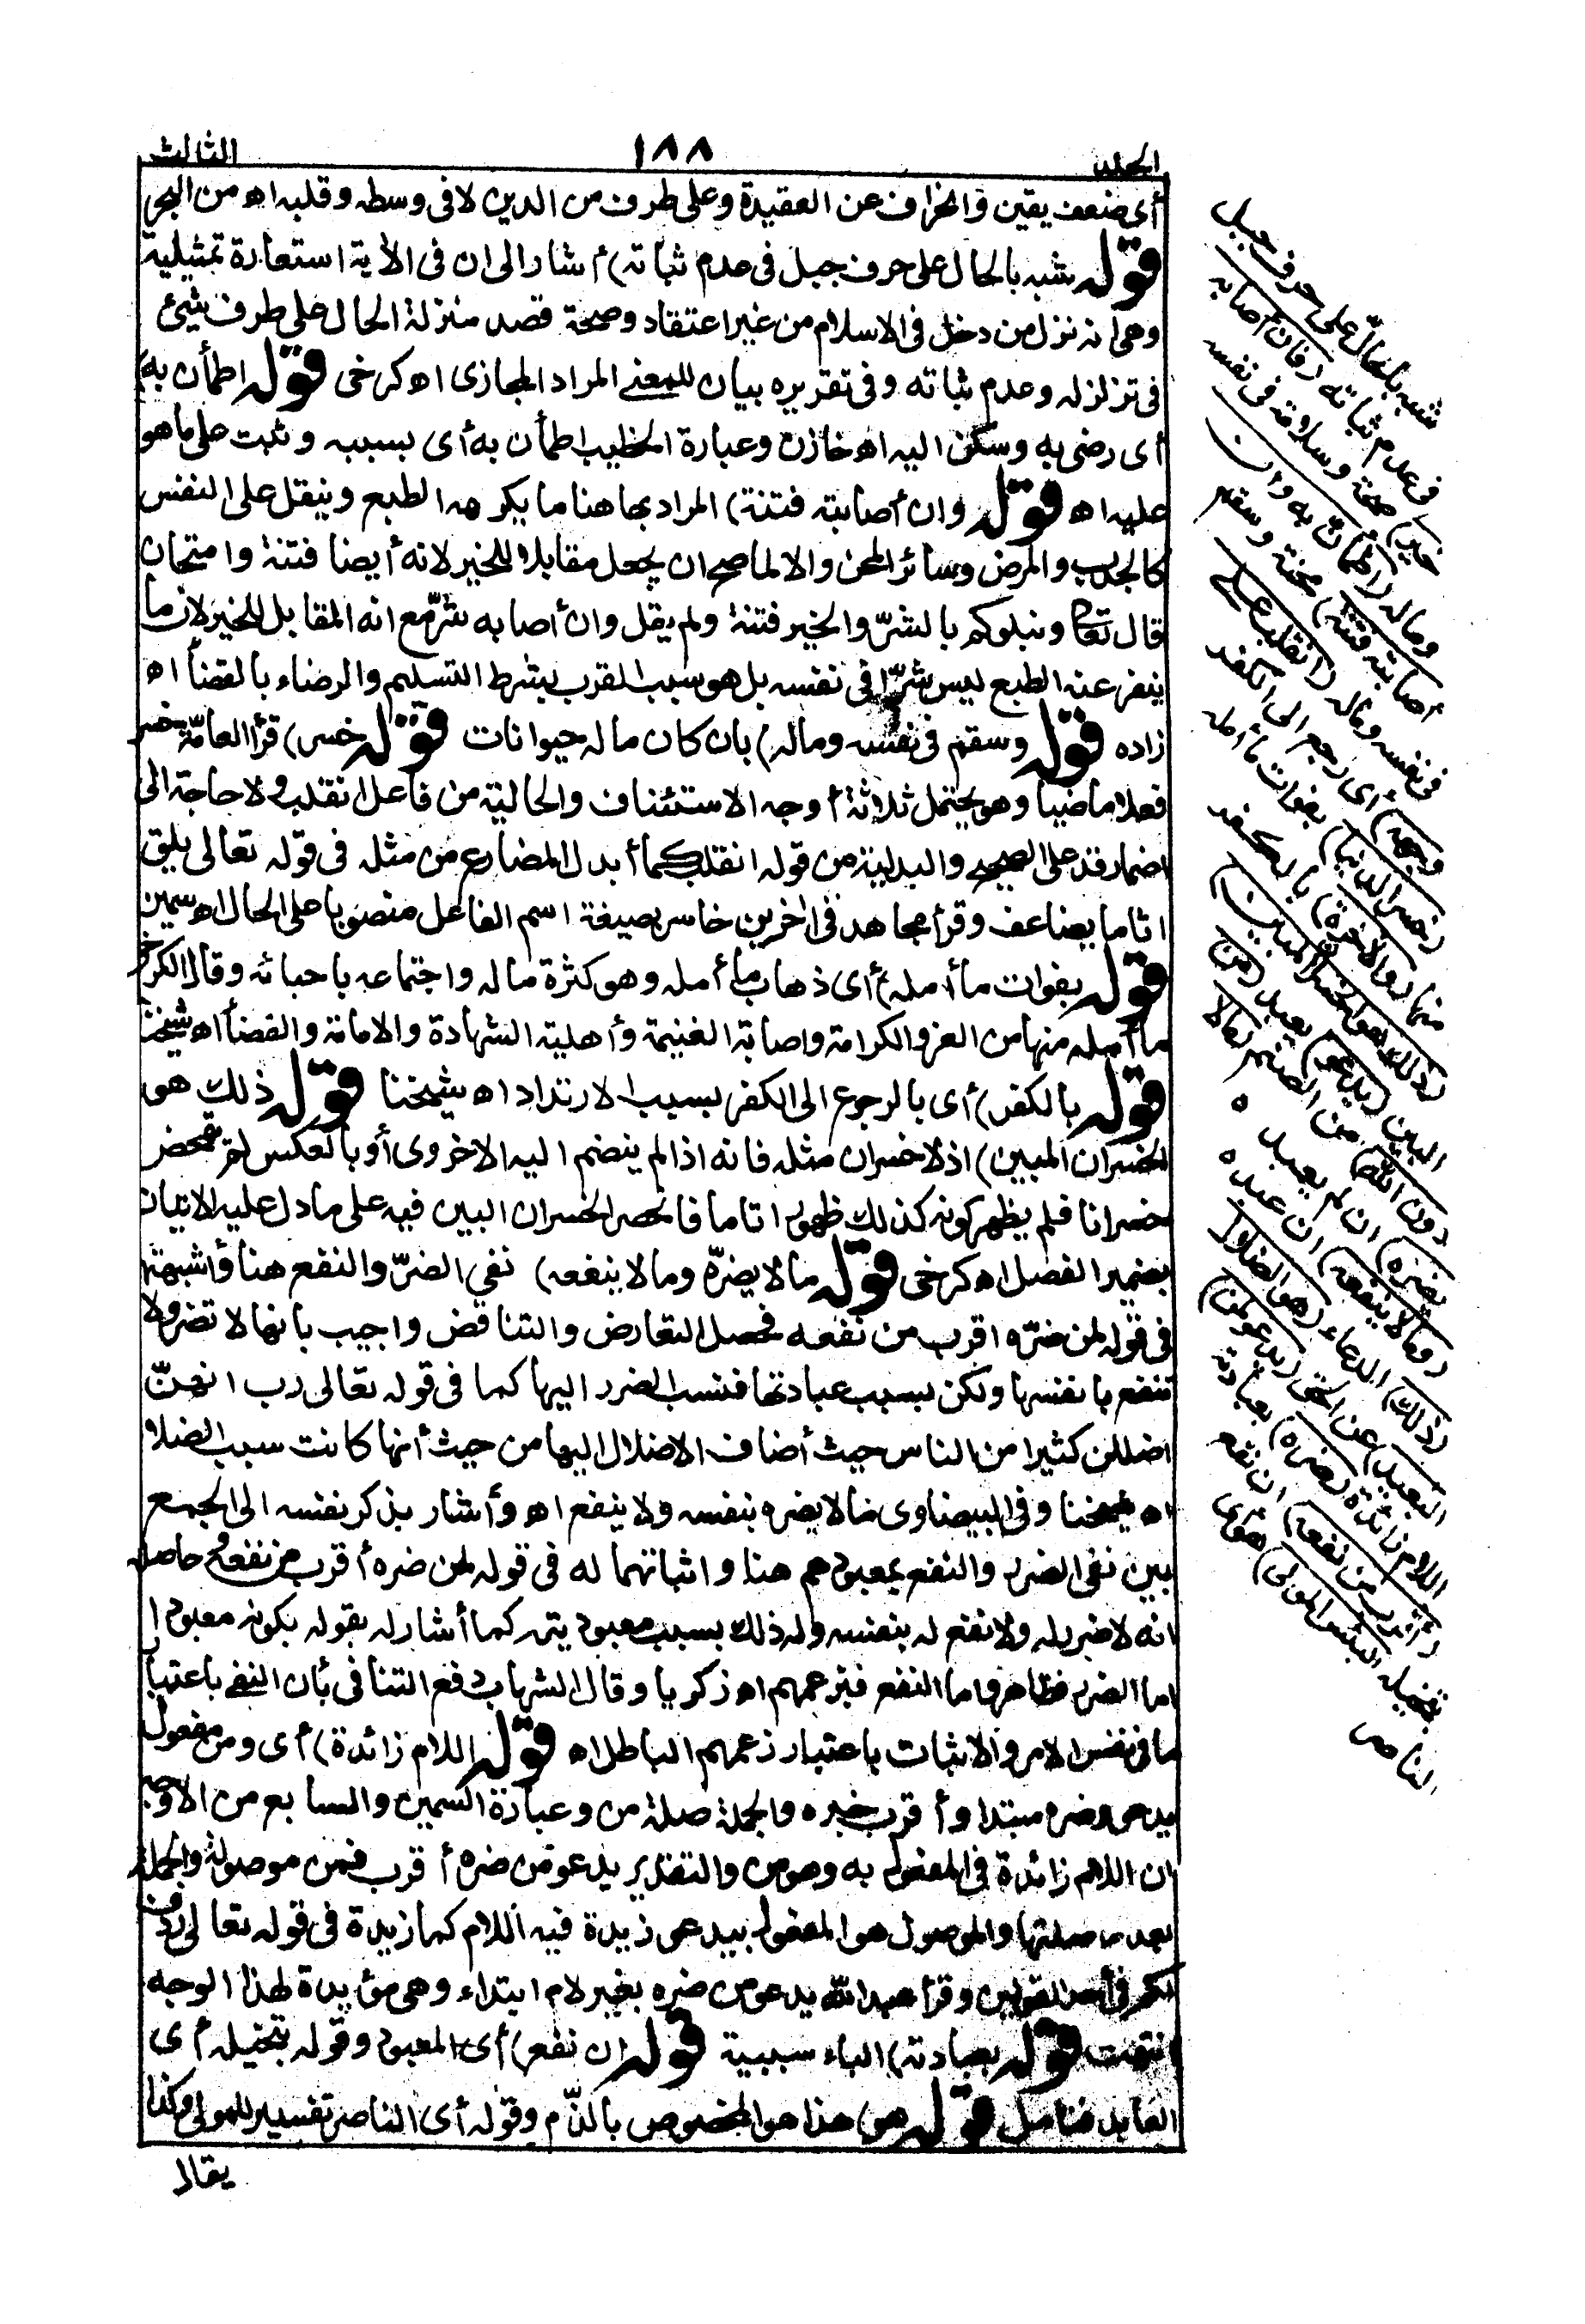 الجلد ١٨٨ الثالث
أى ضعف يقين وانحراف عن العقيدة وعلى طرف من الدين لا فى وسطه وقلبه اه من البحر
قوله شبه بالحال على حرف جبل فى عدم ثباته) أشار الى ان فى الأية استعارة تمثيلية
وهى انه نزل من دخل فى الاسلام من غير اعتقاد وصحة قصد منزلة الحال على طرف شيئ
فى تزلزله وعدم ثباته وفى تقريره بيان للمعنے المراد المجازى اه كرخى قوله اطمأن به)
أى رضى به وسكن اليه اه خازن وعبارة الخطيب اطمأن به أى بسببه وثبت على ما هو
عليه اه قوله وان أصابته فتنة) المراد بها هنا ما يكرهه الطبع ويثقل على النفس
كالجدب والمرض وسائر المحن والا لما صح ان يجعل مقابلا للخير لانه أيضا فتنة وامتحان
قال تعا ونبلوكم بالشرّ والخير فتنة ولم يقل وان أصابه شرّ مع انه المقابل للخير لان ما
ينفر عنه الطبع ليس شرّا فى نفسه بل هو سبب القرب بشرط التسليم والرضاء بالقضأ اه
زاده قوله وسقم فى نفسه وماله) بان كان ماله حيوانات قوله خسر) قرأ العامّة خسر
فعلا ماضيا وهو يحتمل ثلاثة أوجه الاستئناف والحالية من فاعل انقلب ولا حاجة الى
اضمار قد على الصحيح والبدلية من قوله انقلب كما أبدل المضارع من مثله فى قوله تعالى يلق
اثاما يضاعف وقرأ مجاهد فى اخرين خاسر بصيغة اسم الفاعل منصوبا على الحال اه سمين
قوله بفوات ما أمله) أى ذهاب ما أمله وهو كثرة ماله واجتماعه باحبائه وقال الكرخى
ما أمله منها من العز والكرامة واصابة الغنيمة وأهلية الشهادة والامامة والقضأ اه شيخنا
قوله بالكفر) أى بالرجوع الى الكفر بسبب الارتداد اه شيخنا قوله ذلك هو
الخسران المبين) اذ لا خسران مثله فانه اذا لم ينضم اليه الاخروى أو بالعكس لم يتمحض
خسرانا فلم يظهر كونه كذلك ظهورا تاما فانحصر الخسران البين فيه على ما دل عليه الاتيان
بضمير الفصل اه كرخى قوله ما لا يضرّه وما لا ينفعه) نفى الضرّ والنفع هنا وأثبتهما
فى قوله لمن ضرّه اقرب من نفعه فحصل التعارض والتناقض واجيب بانها لا تضر ولا
تنفع بانفسها ولكن بسبب عبادتها فنسب الضرر اليها كما فى قوله تعالى رب انهنّ
اضللن كثيرا من الناس حيث أضاف الاضلال اليها من حيث أنها كانت سبب الضلال
اه شيخنا وفى البيضاوى ما لا يضره بنفسه ولا ينفع اه وأشار بذكر نفسه الى الجمع
بين نفى الضرر والنفع بمعبودهم هنا واثباتهما له فى قوله لمن ضره أقرب من نفعه وحاصله
انه لا ضر له ولا نفع له بنفسه وله ذلك بسبب معبوديته كما أشار له بقوله بكونه معبودا
اما الضرر فظاهر واما النفع فبزعمهم اه زكريا وقال الشهاب دفع التنافى بأن النفے باعتبار
ما فى نفس الامر والاثبات باعتبار زعمهم الباطل اه قوله اللام زائدة) أى ومن مفعول
يدعو وضره مبتدا وأقرب خبره والجملة صلة من وعبارة السمين والسابع من الاوجه
ان اللام زائدة فى المفعول به وهو من والتقدير يدعو من ضره أقرب فمن موصولة والجملة
بعده صلتها والموصول هو المفعول بيدعو زيدة فيه اللام كما زيدة فى قوله تعالى ردف
لكم فى أحد القولين وقرأ عبد الله يدعو من ضره بغير لام ابتداء وهى مؤيدة لهذا الوجه
انتهت قوله بعبادته) الباء سببية قوله ان نفع) أى المعبود وقوله بتخيله أى
العابد فتامل قوله هو) هذا هو المخصوص بالذّم وقوله أى الناصر تفسير للمولى وكذا
يقال
شبه بالحالّ على حرف جبل
فى عدم ثباته (فان أصابه
خير) صحة وسلامة فى نفسه
وماله (اطمأنّ به وان
أصابته فتنة) محنة وسقم
فى نفسه وماله (انقلب على
وجهه) أى رجع الى الكفر
(خسر الدنيا) بفوات ما أمله
منها (والاخرة) بالكفر
(ذلك هو الخسران المبين)
البين (يدعو) يعبد (من
دون الله) من الصنم (ما لا
يضره) ان لم يعبده
(وما لا ينفعه) ان عبده
(ذلك) الدعاء (هو الضلال
البعيد) عن الحق (يدعو لمن)
اللام زائدة (ضره) بعبادته
(أقرب من نفعه) ان نفع
بتخيله (لبئس المولى) هو أى
الناصر